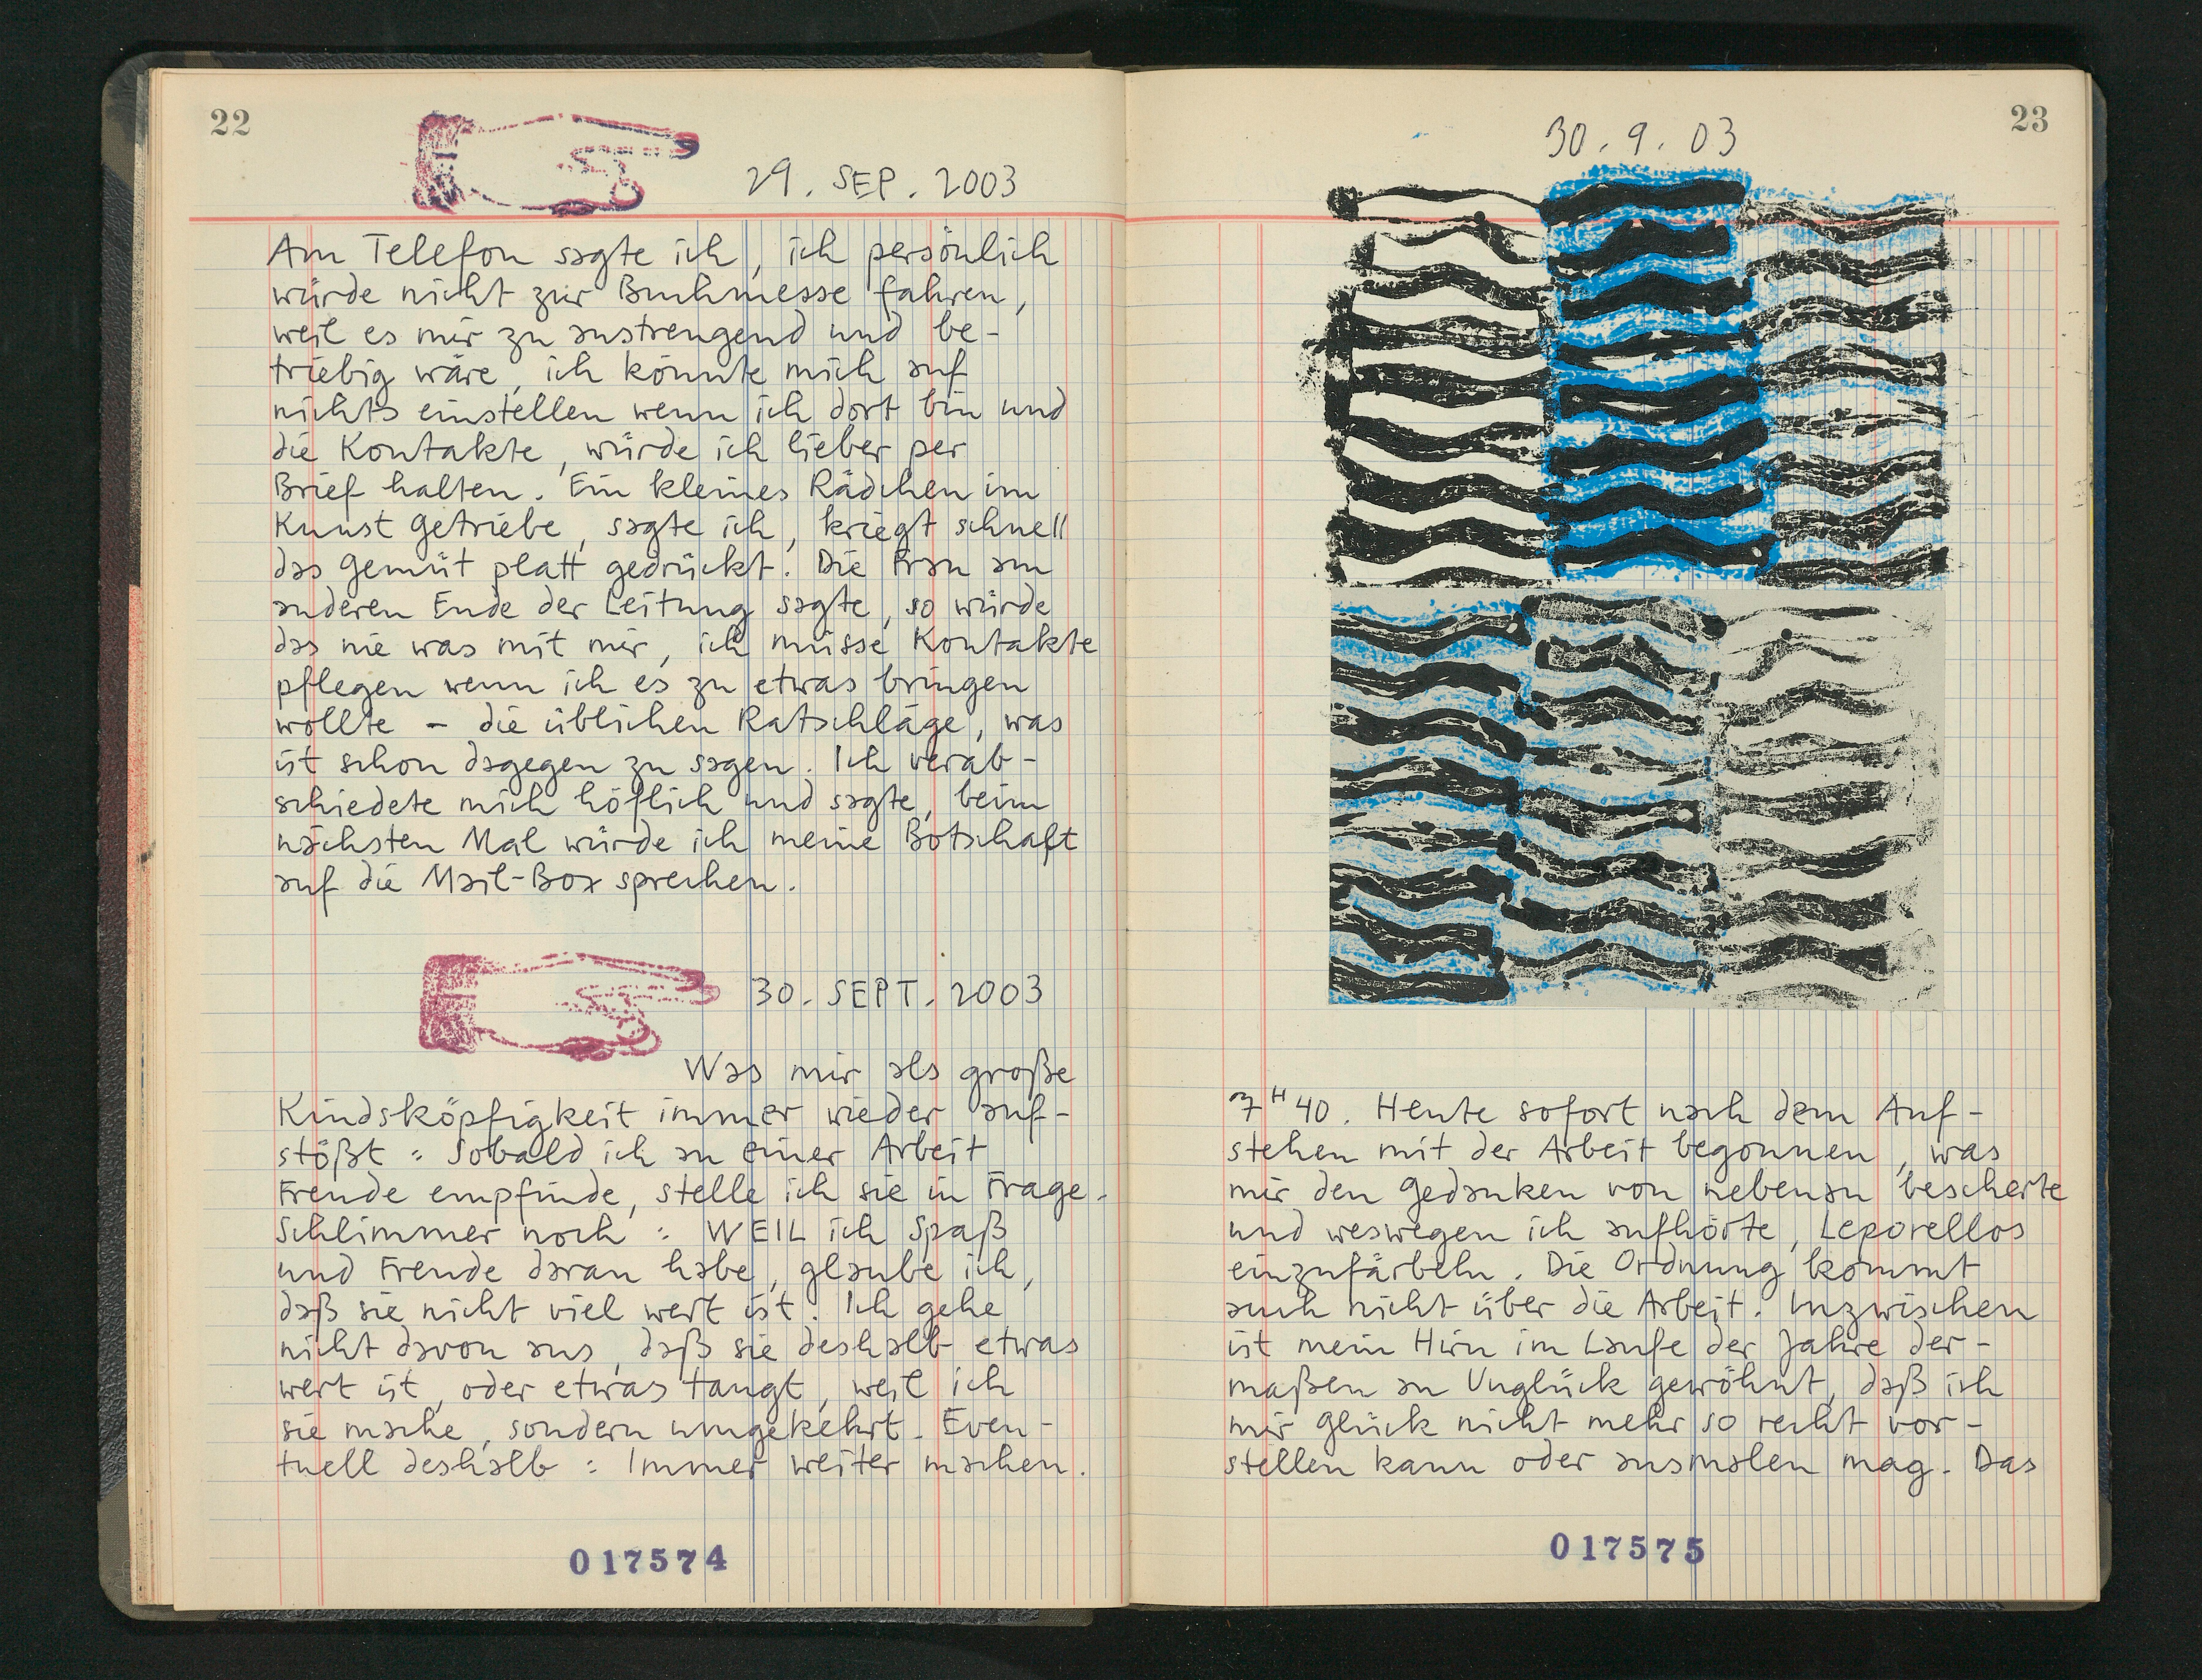 22
29. SEP. 2003
Am Telefon sagte ich, ich persönlich
würde nicht zur Buchmesse fahren,
weil es mir zu anstrengend und be-
triebig wäre, ich könnte mich auf
nichts einstellen wenn ich dort bin und
die Kontakte, würde ich lieber per
Brief halten. Ein kleines Rädchen im
Kunst Getriebe, sagte ich, kriegt schnell
das Gemüt platt gedrückt. Die Frau am
anderen Ende der Leitung sagte, so würde
das nie was mit mir, ich müsse Kontakte
pflegen wenn ich es zu etwas bringen
wollte - die üblichen Ratschläge, was
ist schon dagegen zu sagen. Ich verab-
schiedete mich höflich und sagte, beim
nächsten Mal würde ich meine Botschaft
auf die Mail-Box sprechen.
30. SEPT. 2003
Was mir als große
Kindsköpfigkeit immer wieder auf-
stößt: Sobald ich an einer Arbeit
Freude empfinde, stelle ich sie in Frage.
Schlimmer noch: WEIL ich Spaß
und Freude daran habe, glaube ich,
daß sie nicht viel wert ist. Ich gehe
nicht davon aus, daß sie deshalb etwas
wert ist, oder etwas taugt, weil ich
sie mache, sondern umgekehrt. Even-
tuell deshalb: Immer weiter machen.
017574
23
30. 9. 03
7H40. Heute sofort nach dem Auf-
stehen mit der Arbeit begonnen, was
mir den Gedanken von nebenan bescherte
und weswegen ich aufhörte, Leporellos
einzufärbeln. Die Ordnung kommt
auch nicht über die Arbeit. Inzwischen
ist mein Hirn im Laufe der Jahre der-
maßen an Unglück gewöhnt, daß ich
mir Glück nicht mehr so recht vor-
stellen kann oder ausmalen mag. Das
017575